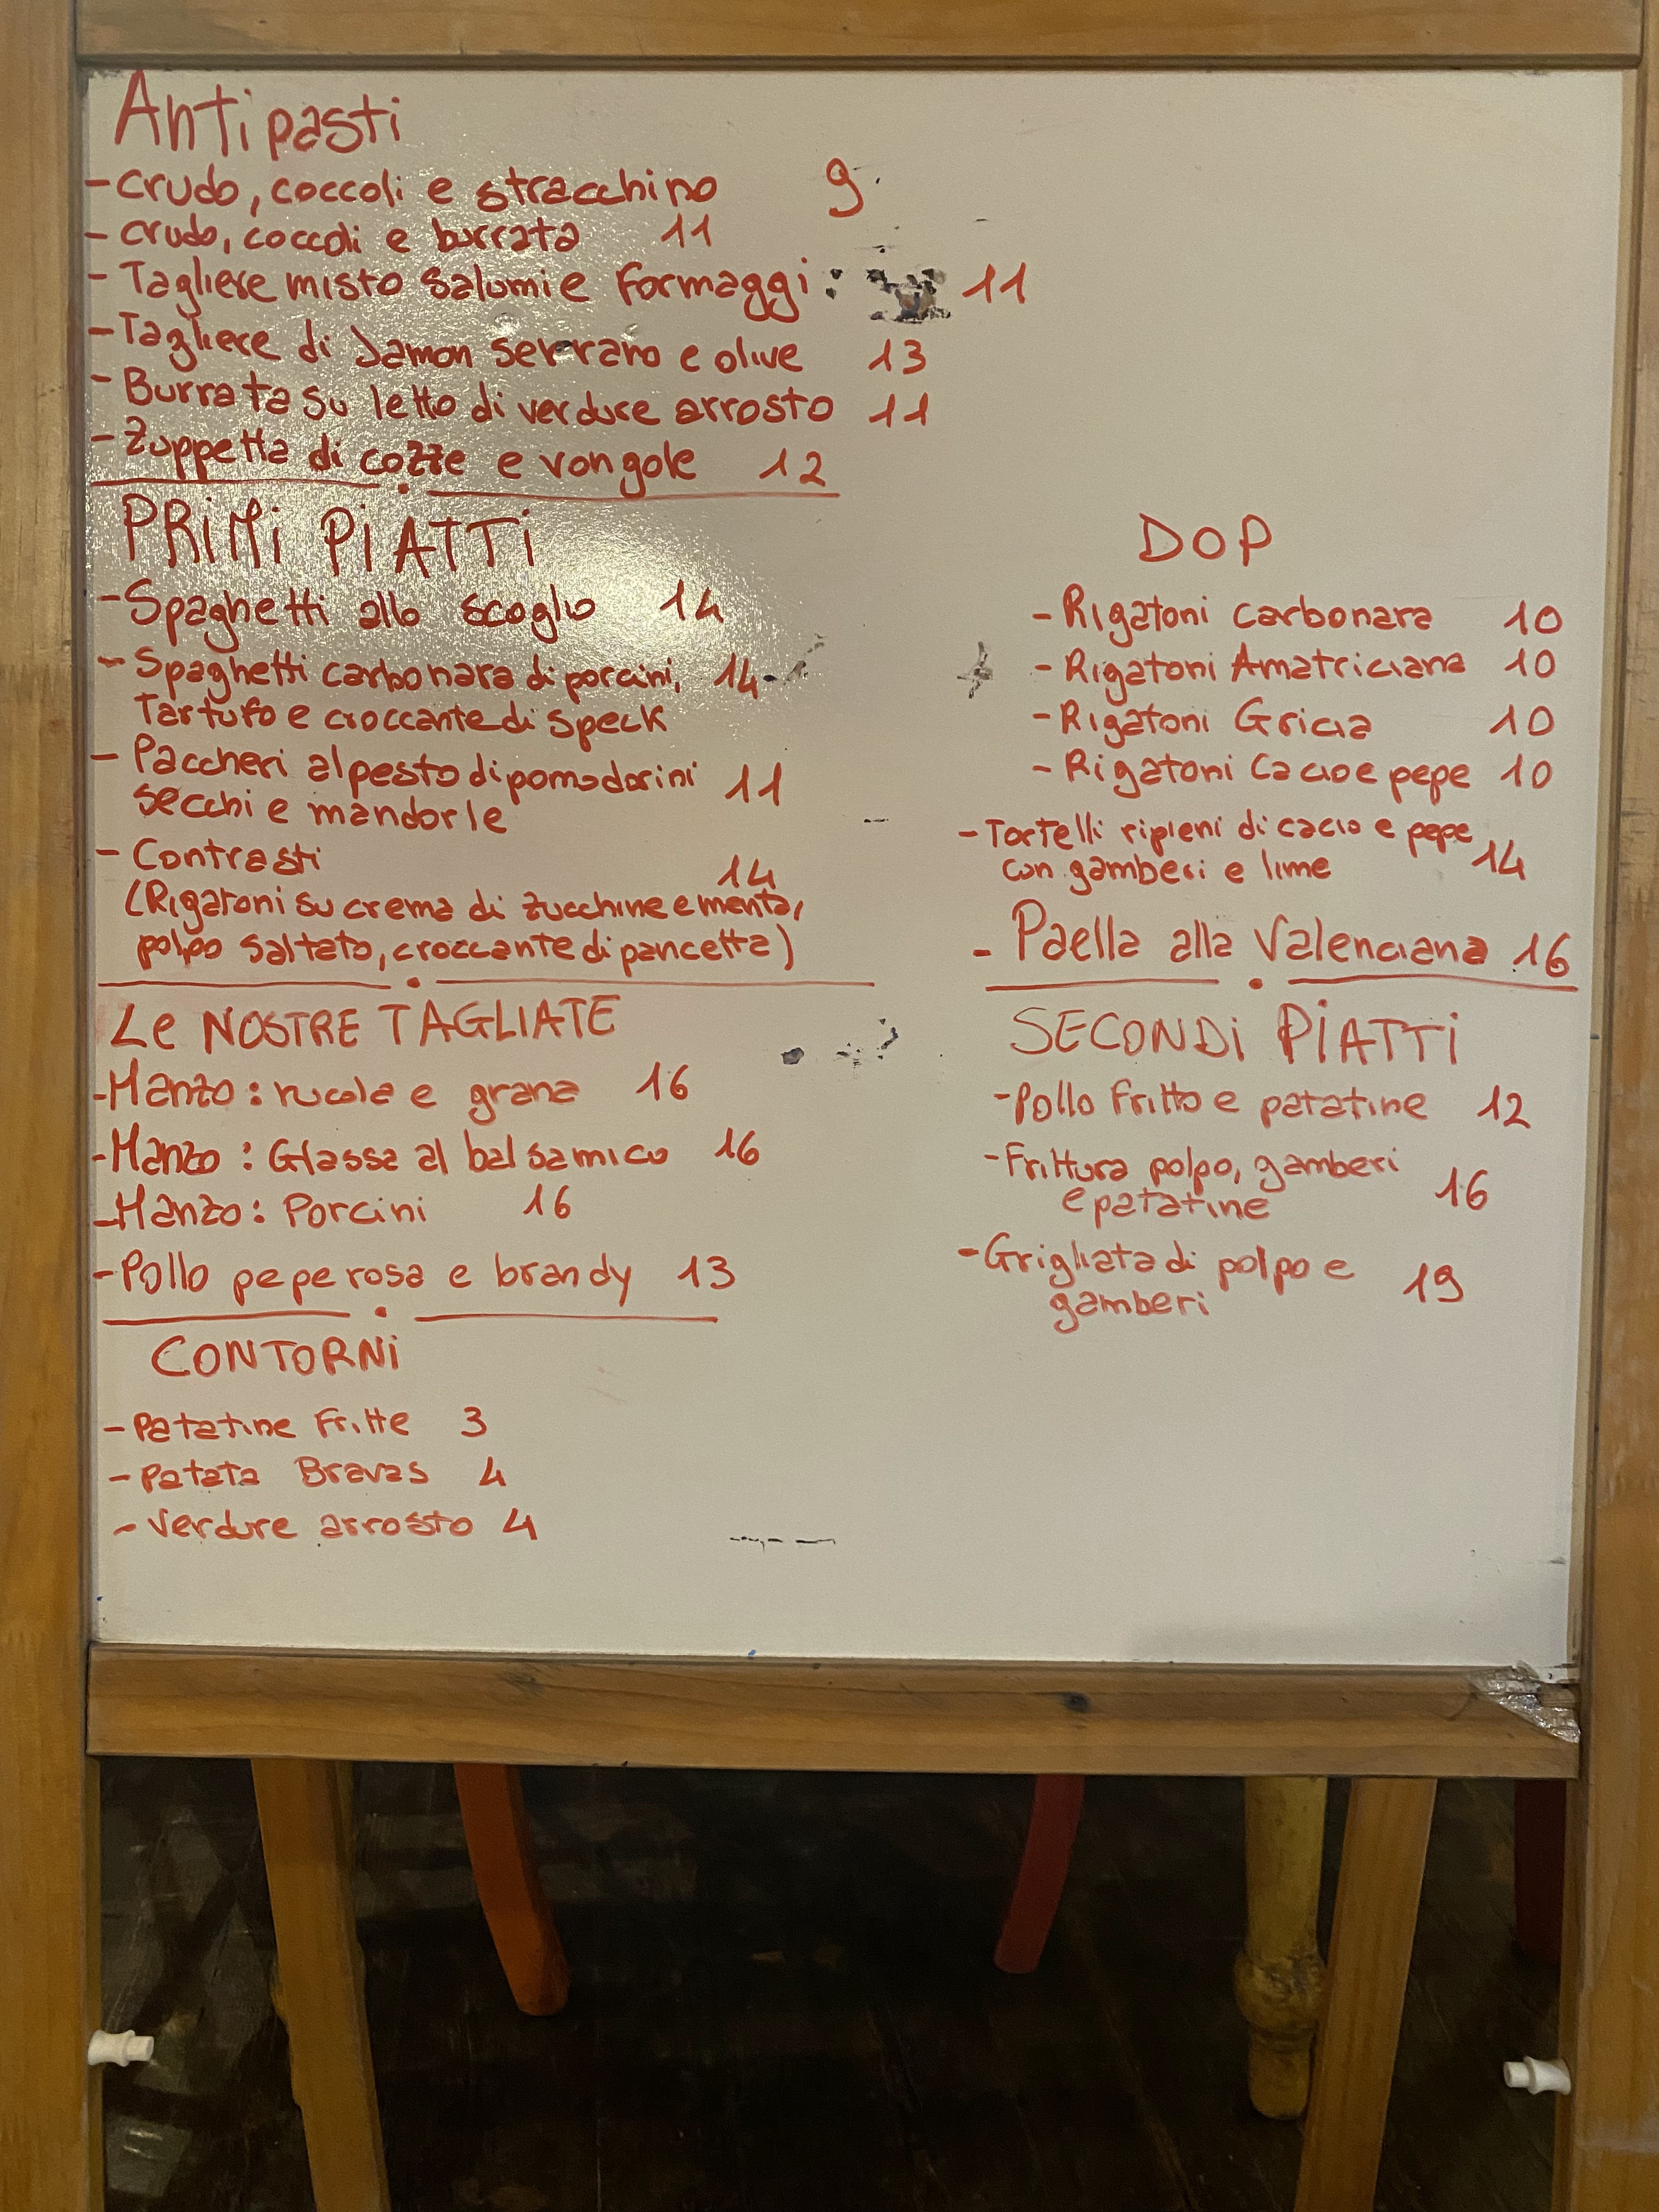 Antipasti
- crudo, coccoli e stracchino 9
- crudo, coccoli e burrata 11
- Tagliere misto salumi e formaggi: 11
- Tagliere di Jamon serrano e olive 13
- Burrata su letto di verdure arrosto 11
- Zuppetta di cozze e vongole 12
PRIMI PIATTI
- Spaghetti allo scoglio 14
- Spaghetti carbonara di porcini, 14
Tartufo e croccante di speck
- Paccheri al pesto di pomodorini 11
secchi e mandorle
- Contrasti 14
(Rigatoni su crema di zucchine e menta,
polpo saltato, croccante di pancetta)
Le NOSTRE TAGLIATE
- Manzo: rucola e grana 16
- Manzo: Glassa al balsamico 16
- Manzo: Porcini 16
- Pollo pepe rosa e brandy 13
CONTORNI
- Patatine Fritte 3
- Patata Bravas 4
- Verdure arrosto 4
DOP
- Rigatoni carbonara 10
- Rigatoni Amatriciana 10
- Rigatoni Gricia 10
- Rigatoni Cacio e pepe 10
- Tortelli ripieni di cacio e pepe
con gamberi e lime 14
- Paella alla Valenciana 16
SECONDI PIATTI
- Pollo Fritto e patatine 12
- Frittura polpo, gamberi
e patatine 16
- Grigliata di polpo e
gamberi 19